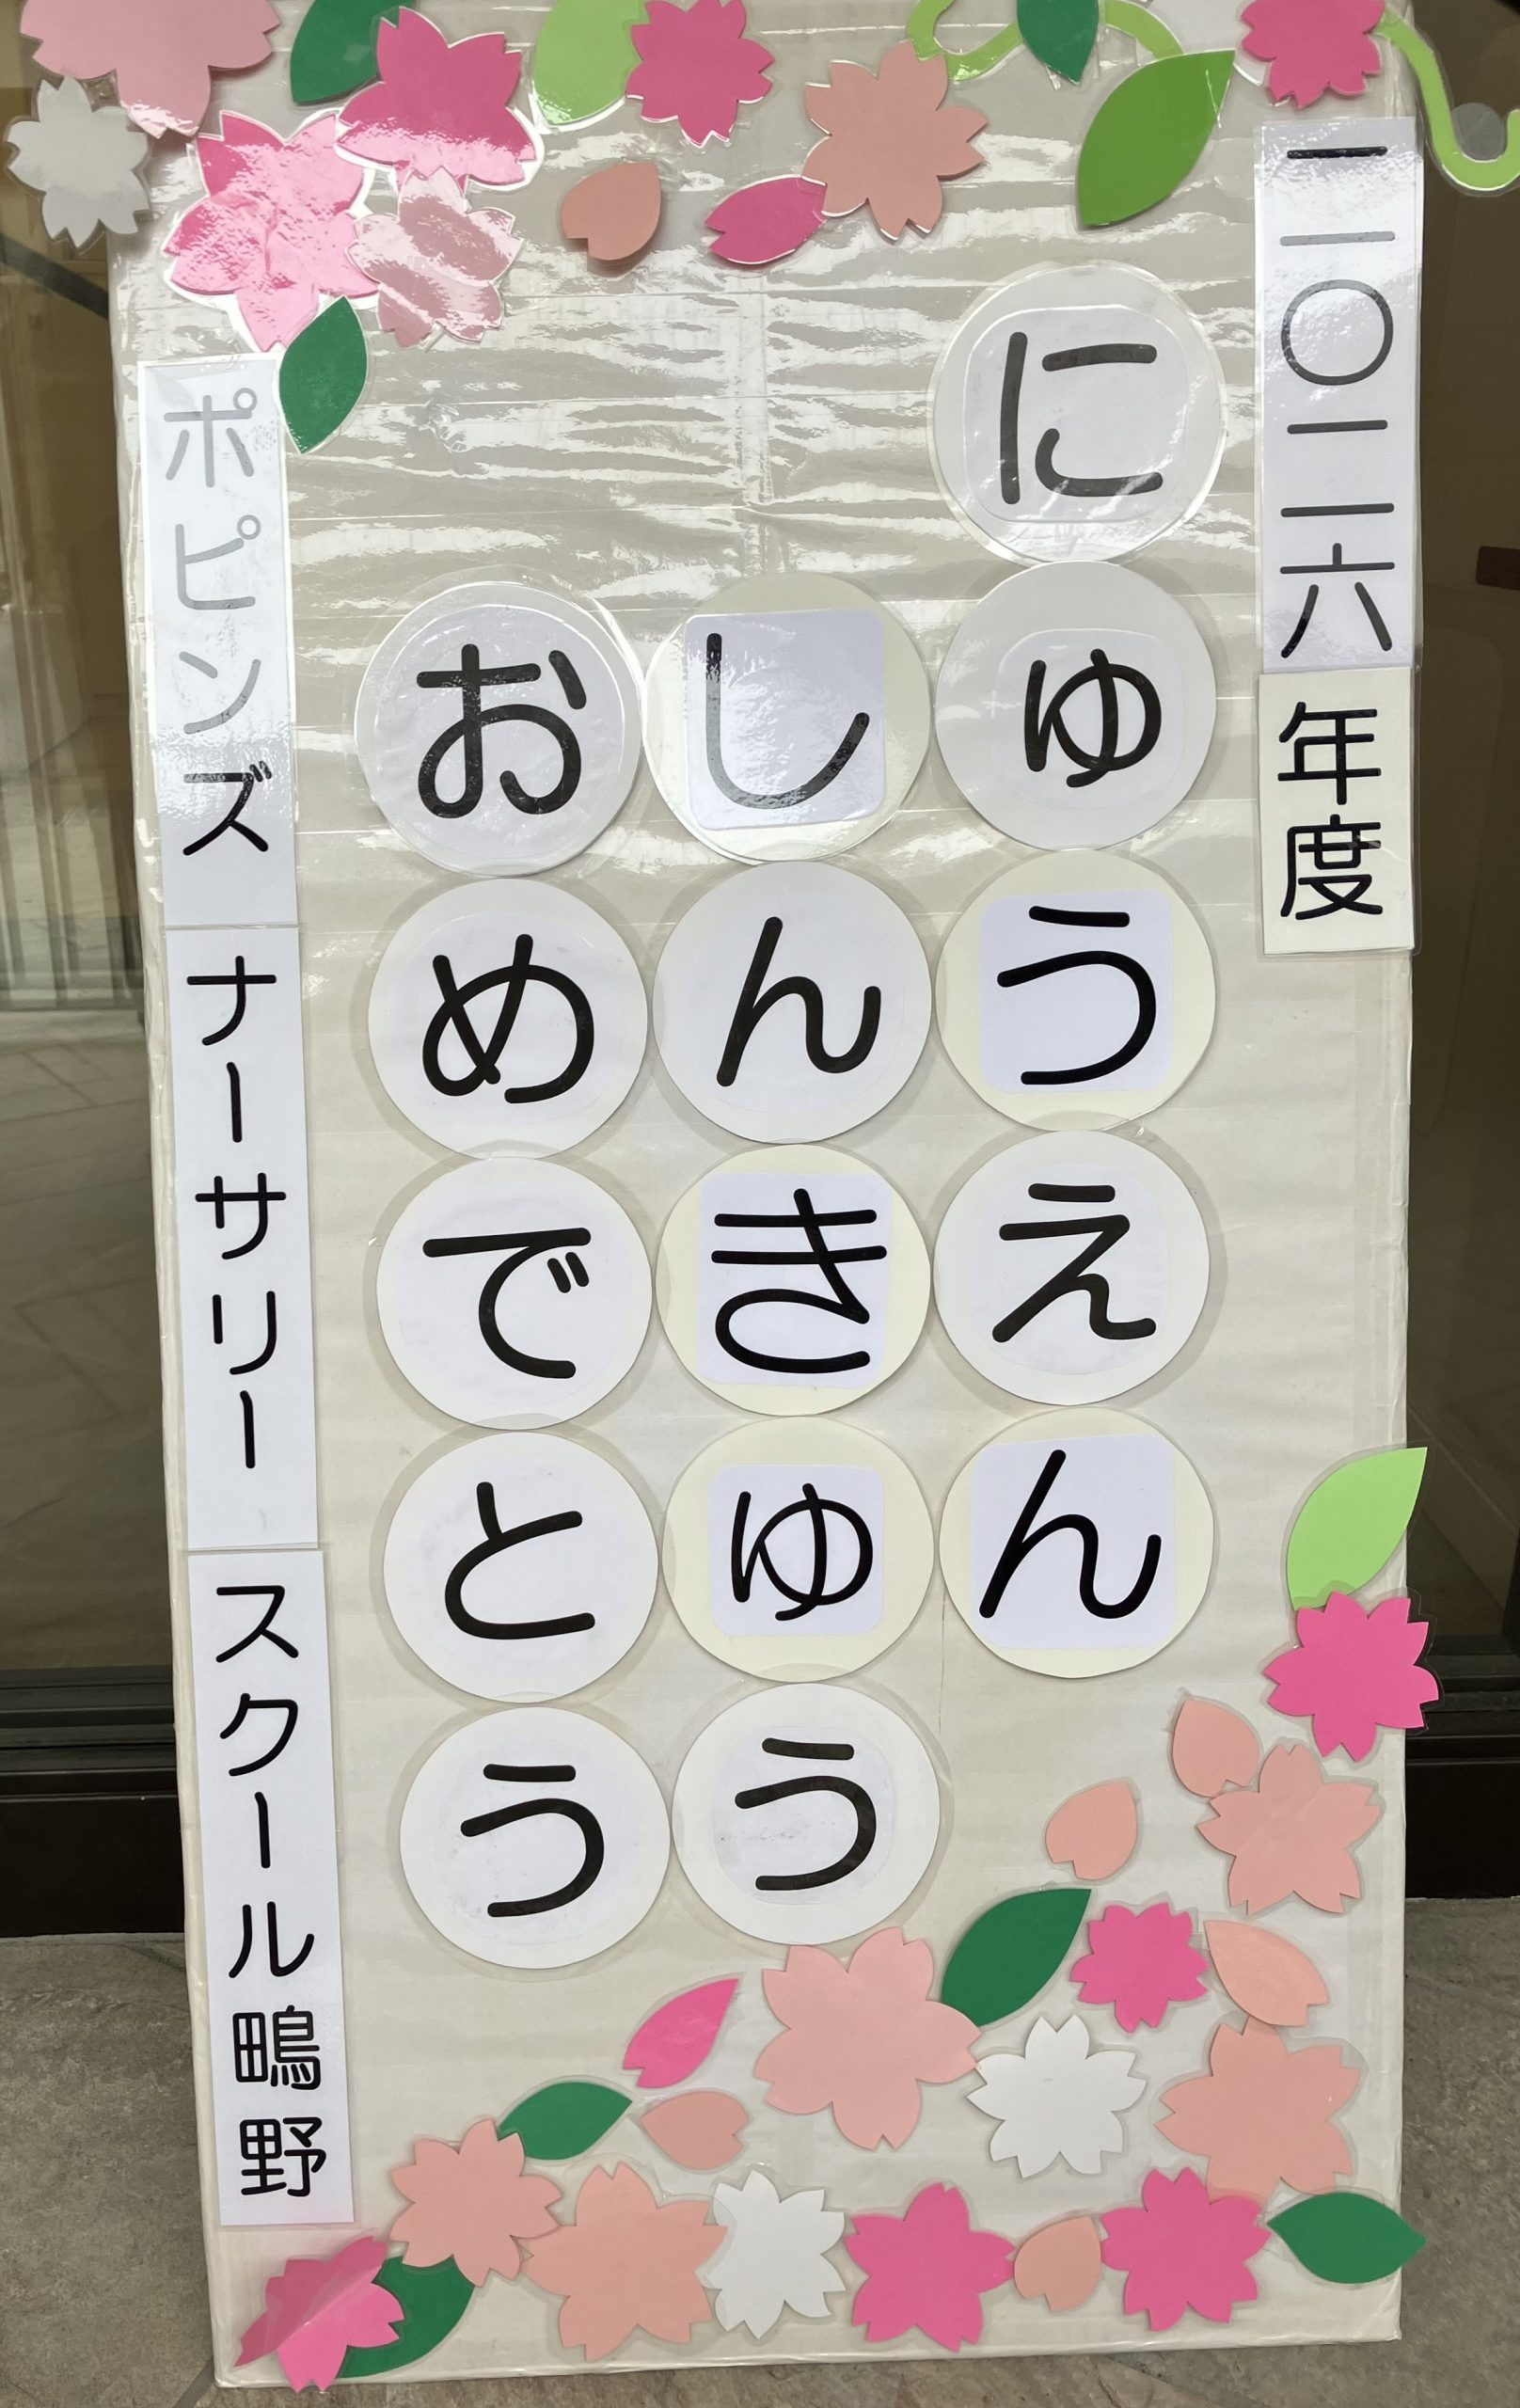 二〇二六年度
にゅうえん
しんきゅう
おめでとう
ポピンズナーサリースクール鴫野